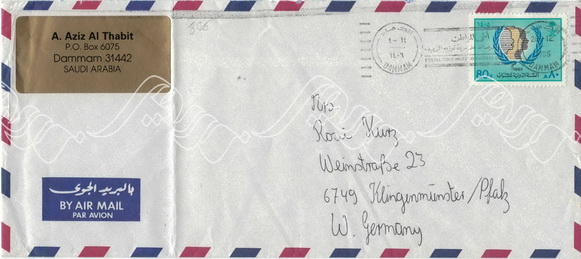 A. Aziz Al Thabit
P.O. Box 6075
Dammam 31442
SAUDI ARABIA
DAMMAM
DAMMAM
80
٨٠
Rosi Kurz
Weinstraße 23
6749 Klingenmünster/Pfalz
W. Germany
بالبريد الجوى
BY AIR MAIL
PAR AVION